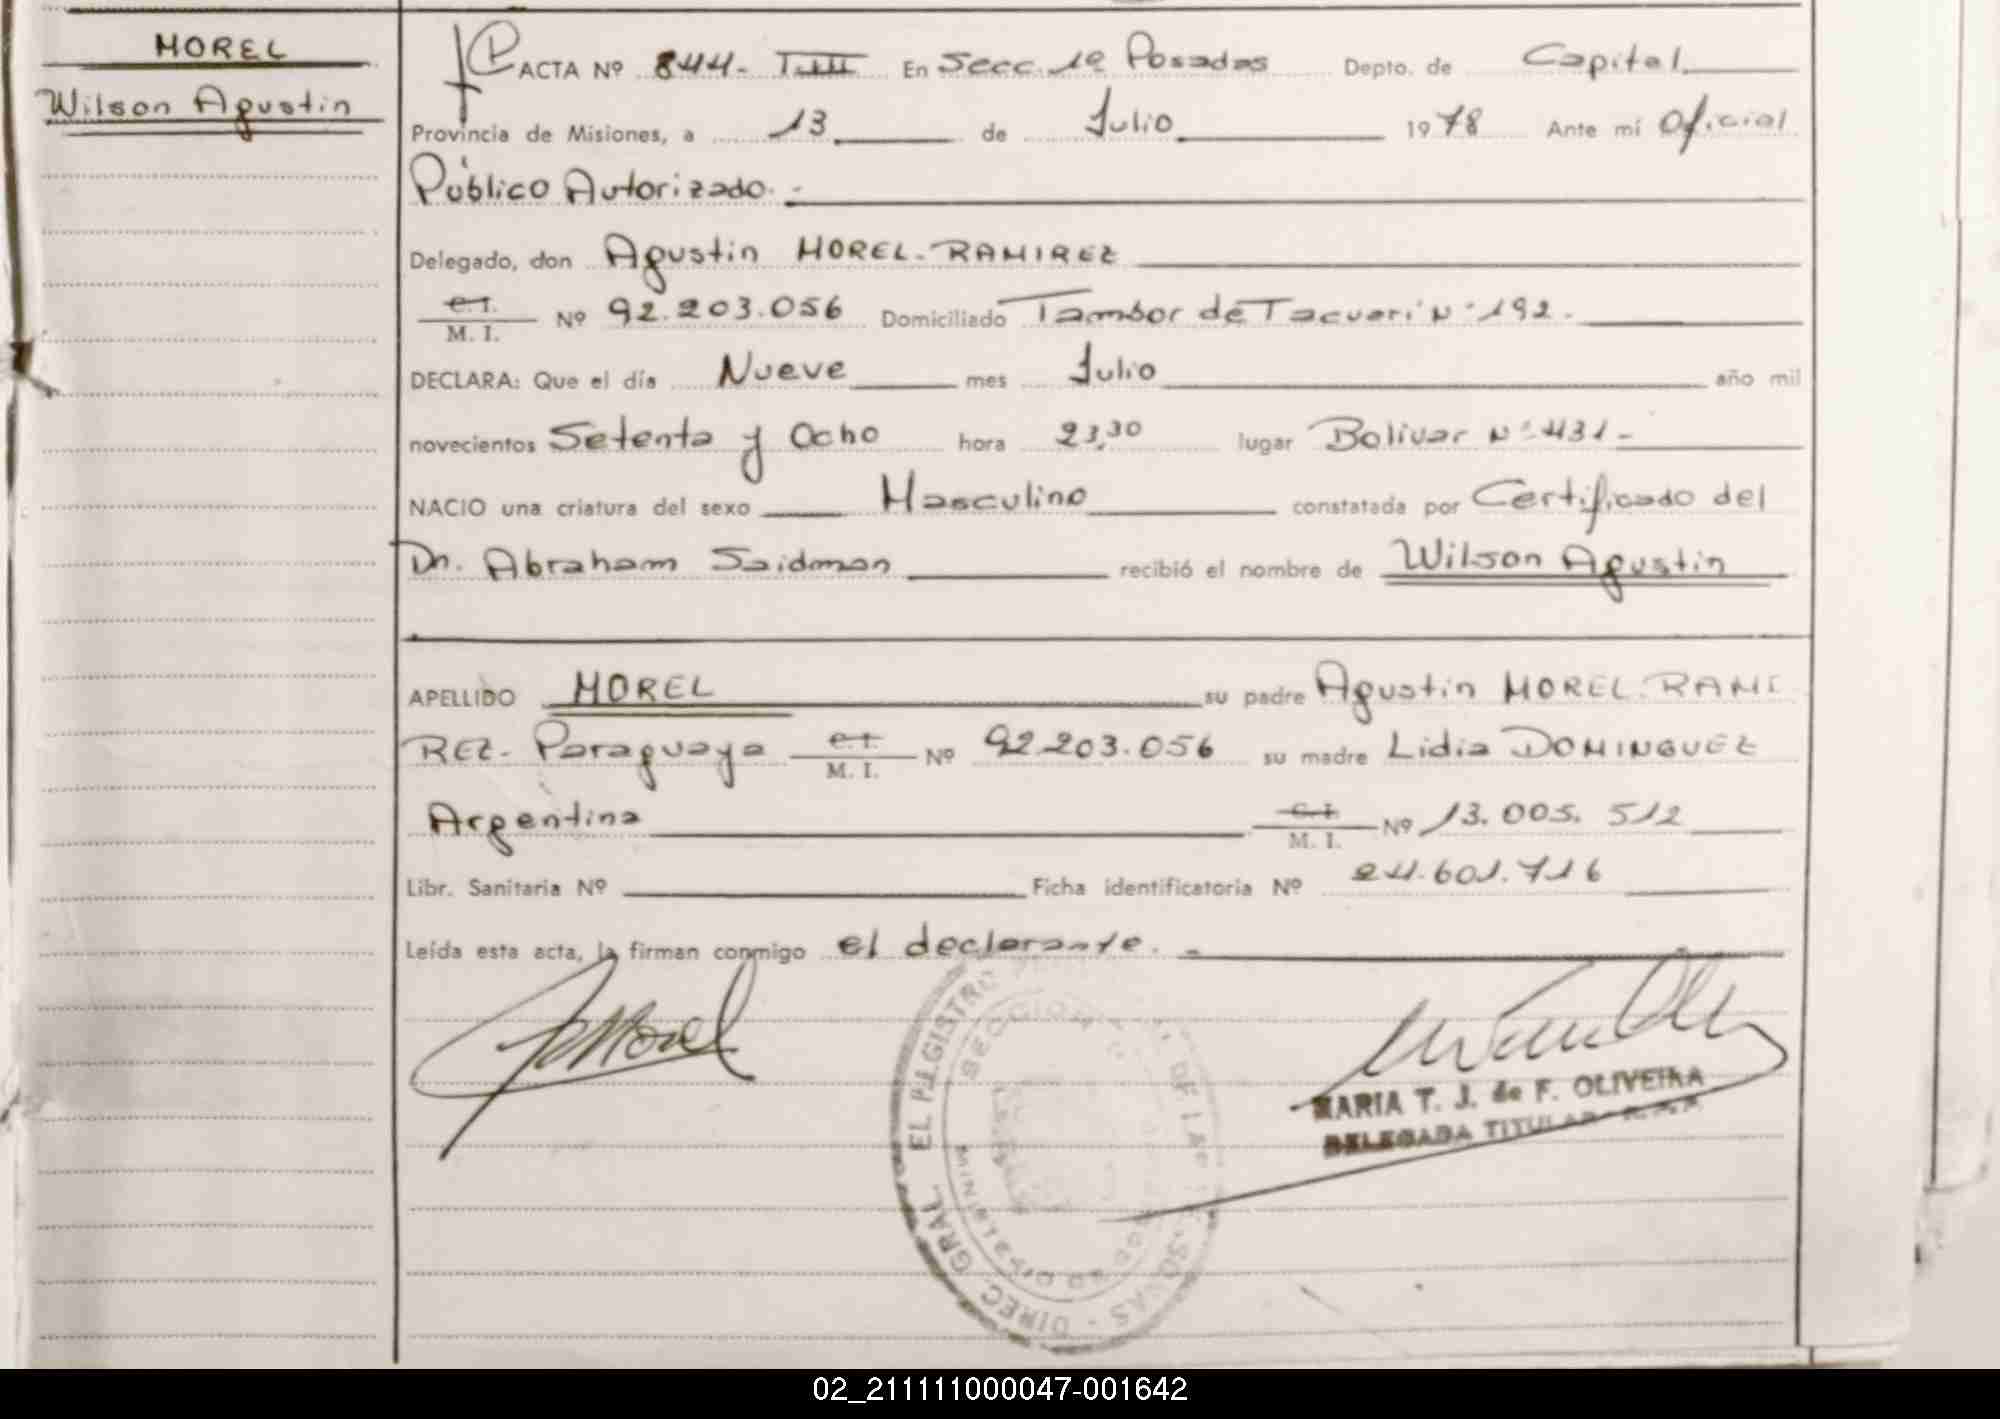 MOREL
Wilson Agustin
ACTA Nº 844- T.III En Secc. 1º Posadas Depto. de Capital
Provincia de Misiones, a 13 de Julio 1978 Ante mí Oficial
Público Autorizado.-
Delegado, don Agustin MOREL-RAMIREZ
C.I. M. I. Nº 92.203.056 Domiciliado Tambor de Tacuari Nº 192.
DECLARA: Que el día Nueve mes Julio año mil
novecientos Setenta y Ocho hora 23,30 lugar Bolivar Nº 431-
NACIO una criatura del sexo Masculino constatada por Certificado del
Dr. Abraham Saidman recibió el nombre de Wilson Agustin
APELLIDO MOREL su padre Agustin MOREL-RAMI
REZ- Paraguaya C.I. M. I. Nº 92.203.056 su madre Lidia DOMINGUEZ
Argentina C.I. M. I. Nº 13.005.512
Libr. Sanitaria Nº Ficha identificatoria Nº 24.601.716
Leída esta acta, la firman conmigo el declarante.-
Morel
MARIA T. J. de F. OLIVEIRA
DELEGADA TITULAR
DIREC. GRAL. DEL REGISTRO DE LAS PERSONAS
SECCION
MINISTERIO DE GOB
02_211111000047-001642